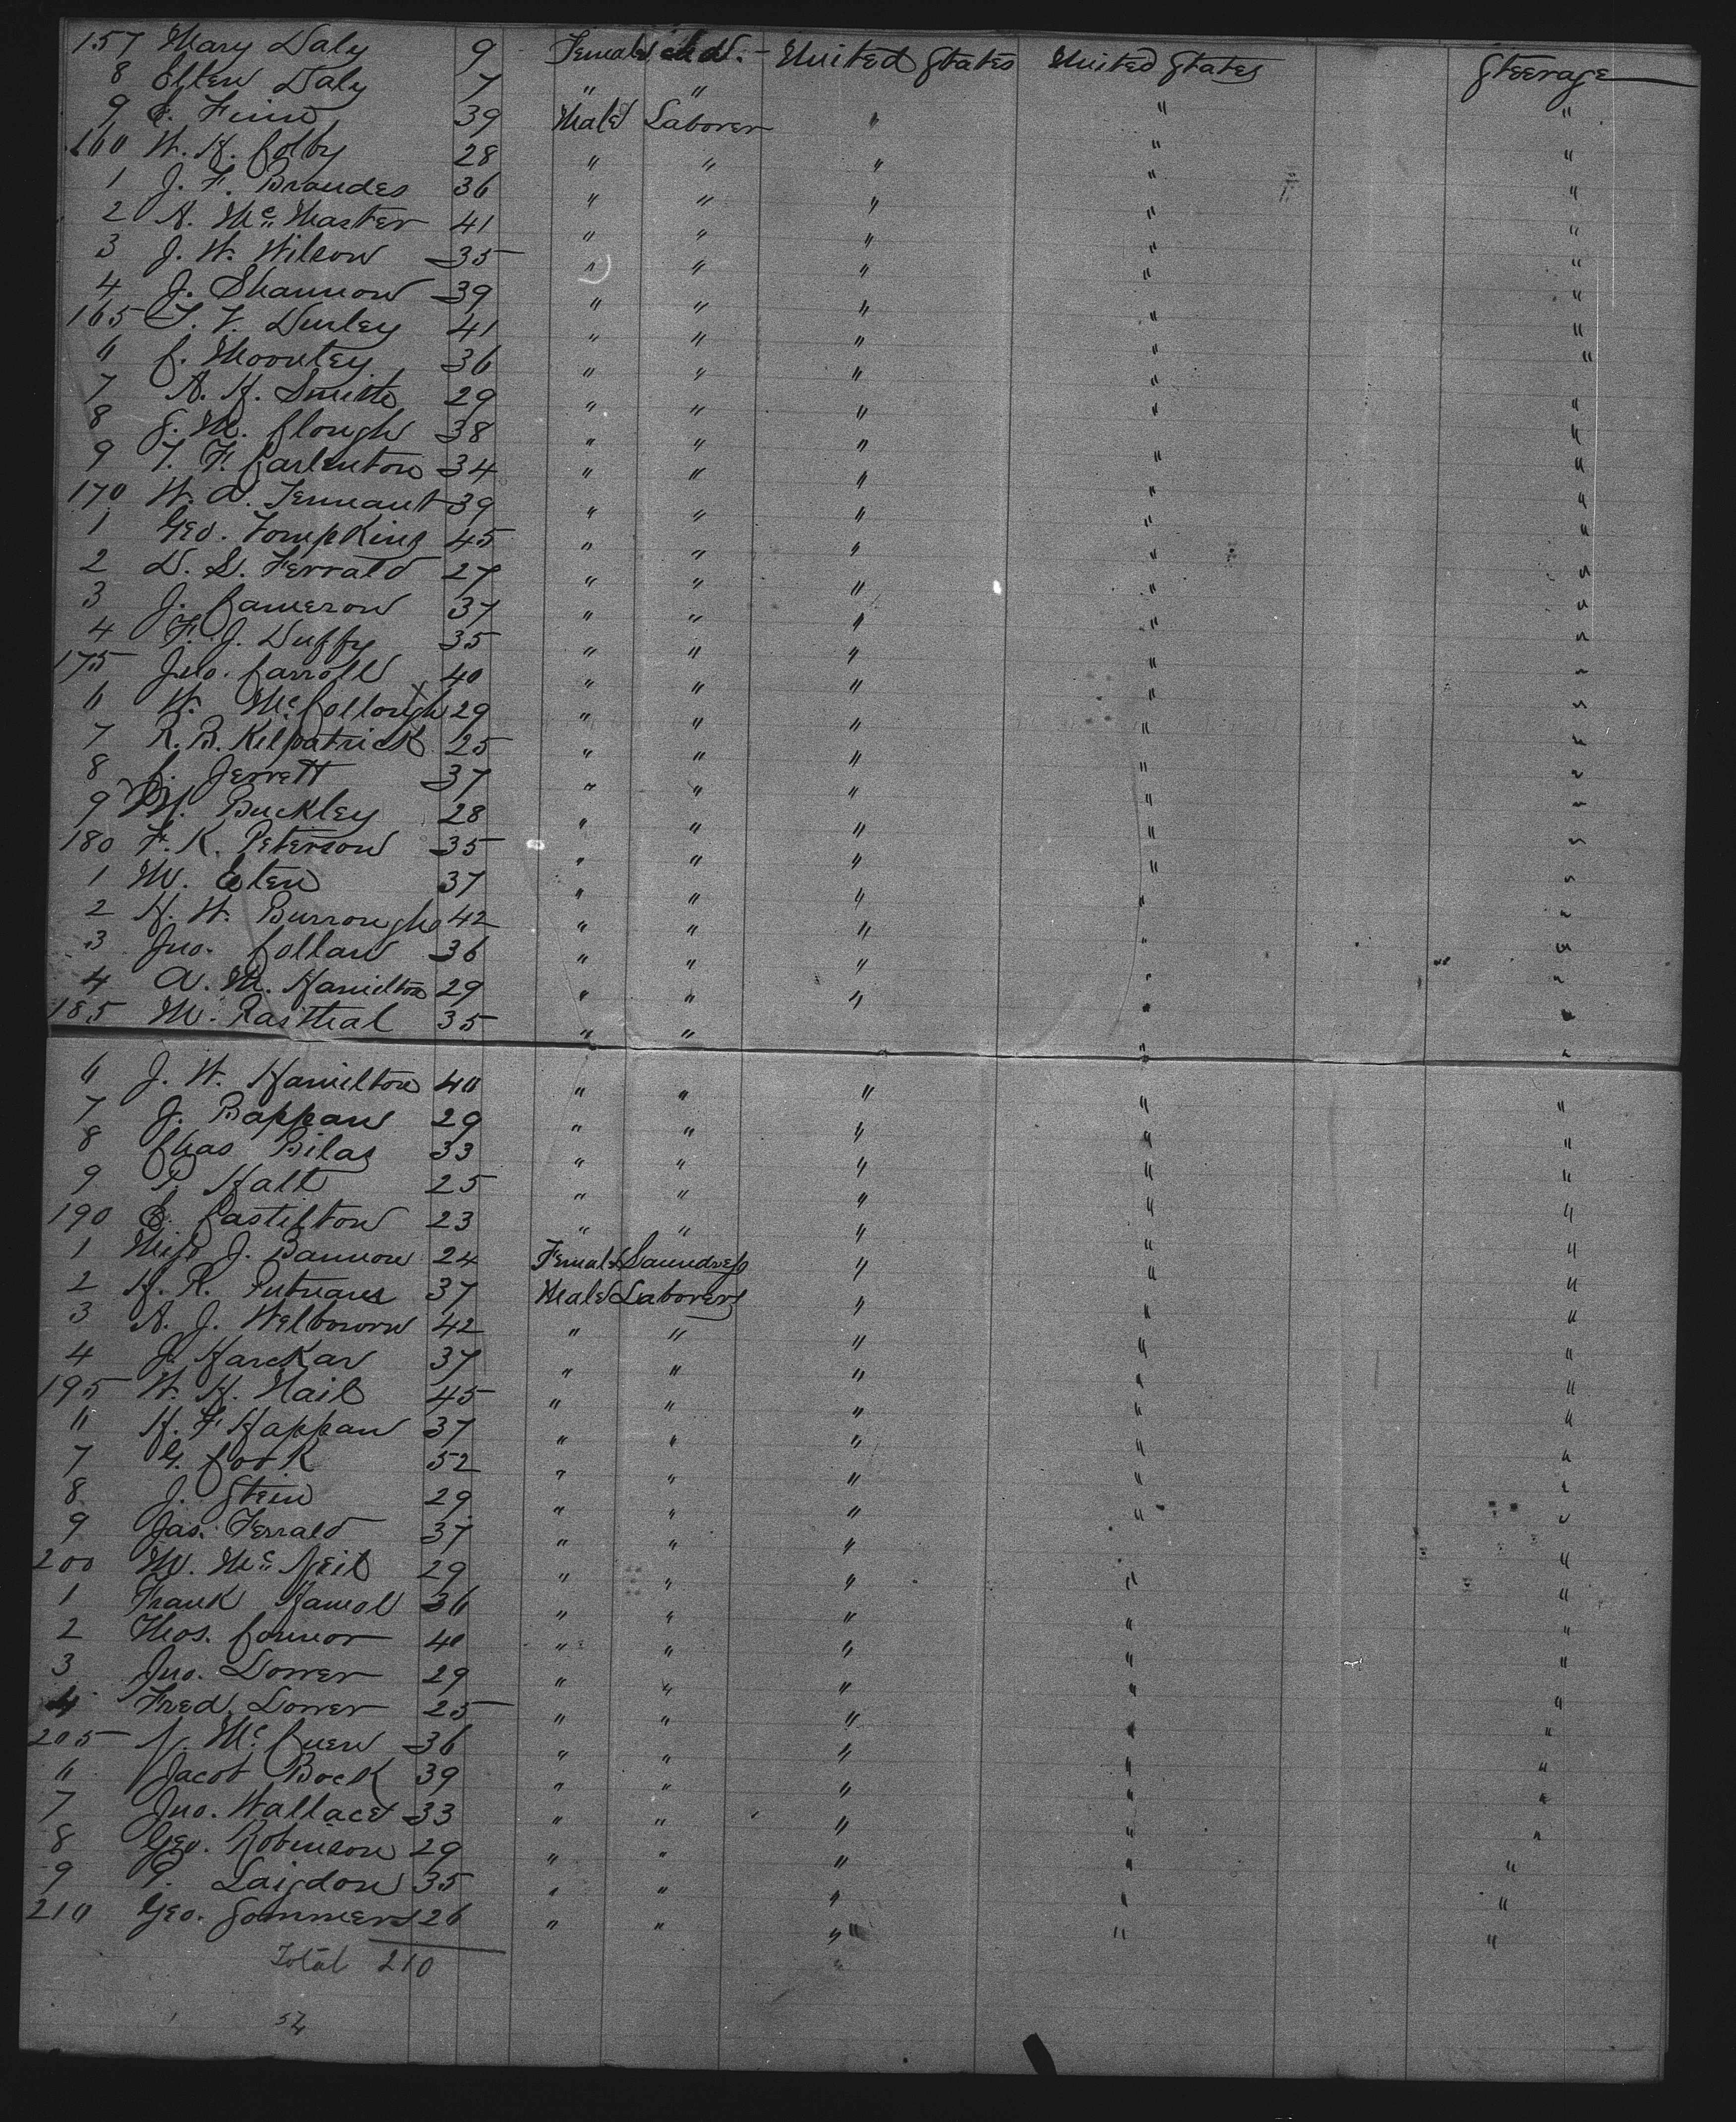 157 Mary Daly 9 Female chd. - United States United States Steerage
8 Ellen Daly 7 " " " "
9 Finn 39 Male Laborer " " "
160 W. H. Colby 28 " " " " "
1 J. F. Brandes 36 " " " " "
2 A. Mc Master 41 " " " " "
3 J. W. Wilson 35 " " " " "
4 J. Shannon 39 " " " " "
165 T. V. Durley 41 " " " " "
6 C. 36 " " " " "
7 A. H. Smith 29 " " " " "
8 G. M. Clough 38 " " " " "
9 T. F. 34 " " " " "
170 W. A. Tennant 39 " " " " "
1 Geo. Tompkins 45 " " " " "
2 D. S. Ferrald 27 " " " " "
3 J. Cameron 37 " " " " "
4 F. J. Duffy 35 " " " " "
175 Jno. Carroll 40 " " " " "
6 W. Mc Collough 29 " " " " "
7 R. B. Kilpatrick 25 " " " " "
8 Jerrett 37 " " " " "
9 M. Buckley 28 " " " " "
180 F. K. Peterson 35 " " " " "
1 M. Eten 37 " " " " "
2 H. W. Burroughs 42 " " " " "
3 Jno. Collan 36 " " " " "
4 A. M. Hamilton 29 " " " " "
185 M. Rasthal 35 " " " "
6 J. W. Hamilton 40 " " " " "
7 J. Bappan 29 " " " " "
8 Chas Bilas 33 " " " " "
9 P. Halt 25 " " " " "
190 E. Castleton 23 " " " " "
1 Miss J. Bannon 24 Female Laundress " " "
2 H. R. Putnam 37 Male Laborer " " "
3 A. J. Welbourn 42 " " " " "
4 J. Harckar 37 " " " " "
195 W. H. Hail 45 " " " " "
6 H. F. Happan 37 " " " " "
7 G. Cook 52 " " " " "
8 J. Stein 29 " " " " "
9 Jas. Ferrald 37 " " " " "
200 M. Mc Neil 29 " " " " "
1 Frank Hamol 36 " " " " "
2 Thos. Connor 40 " " " " "
3 Jno. Dorrer 29 " " " " "
4 Fred. Dorrer 25 " " " " "
205 N. Mc Cuen 36 " " " " "
6 Jacob Bock 39 " " " " "
7 Jno. Wallace 33 " " " " "
8 Geo. Robinson 29 " " " " "
9 P. Laigdon 35 " " " " "
210 Geo. Sommers 26 " " " " "
Total 210
54